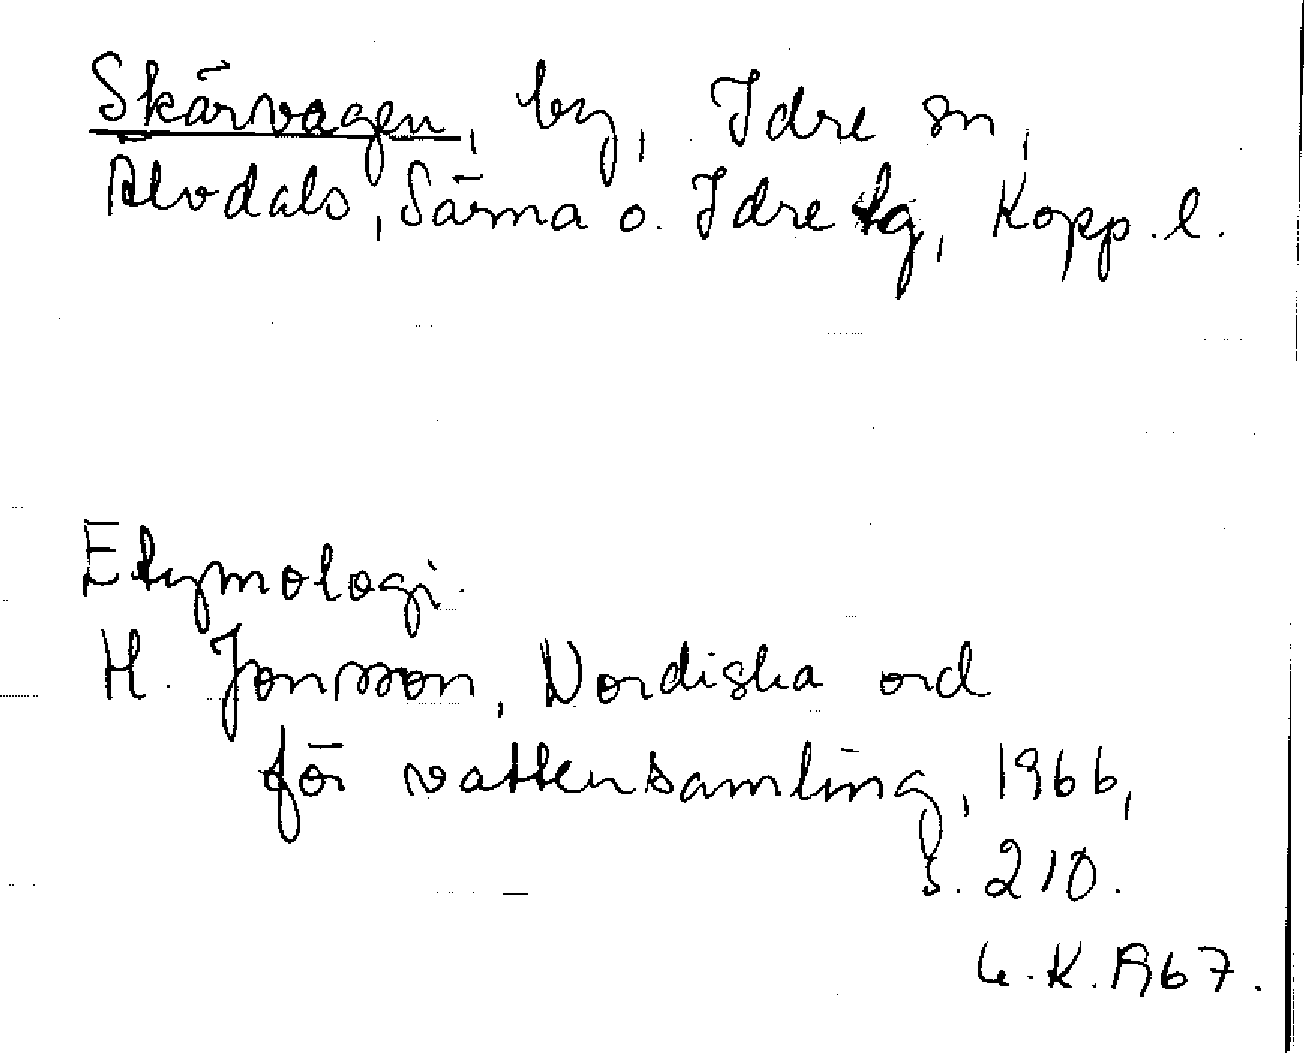 Skärvagen, by, Idre sn,
Älvdals, Särna o. Idre tg, Kopp. l.
Etymologi.
H. Jonsson, Nordiska ord
för vattensamling, 1966,
s. 210.
K. 1967.